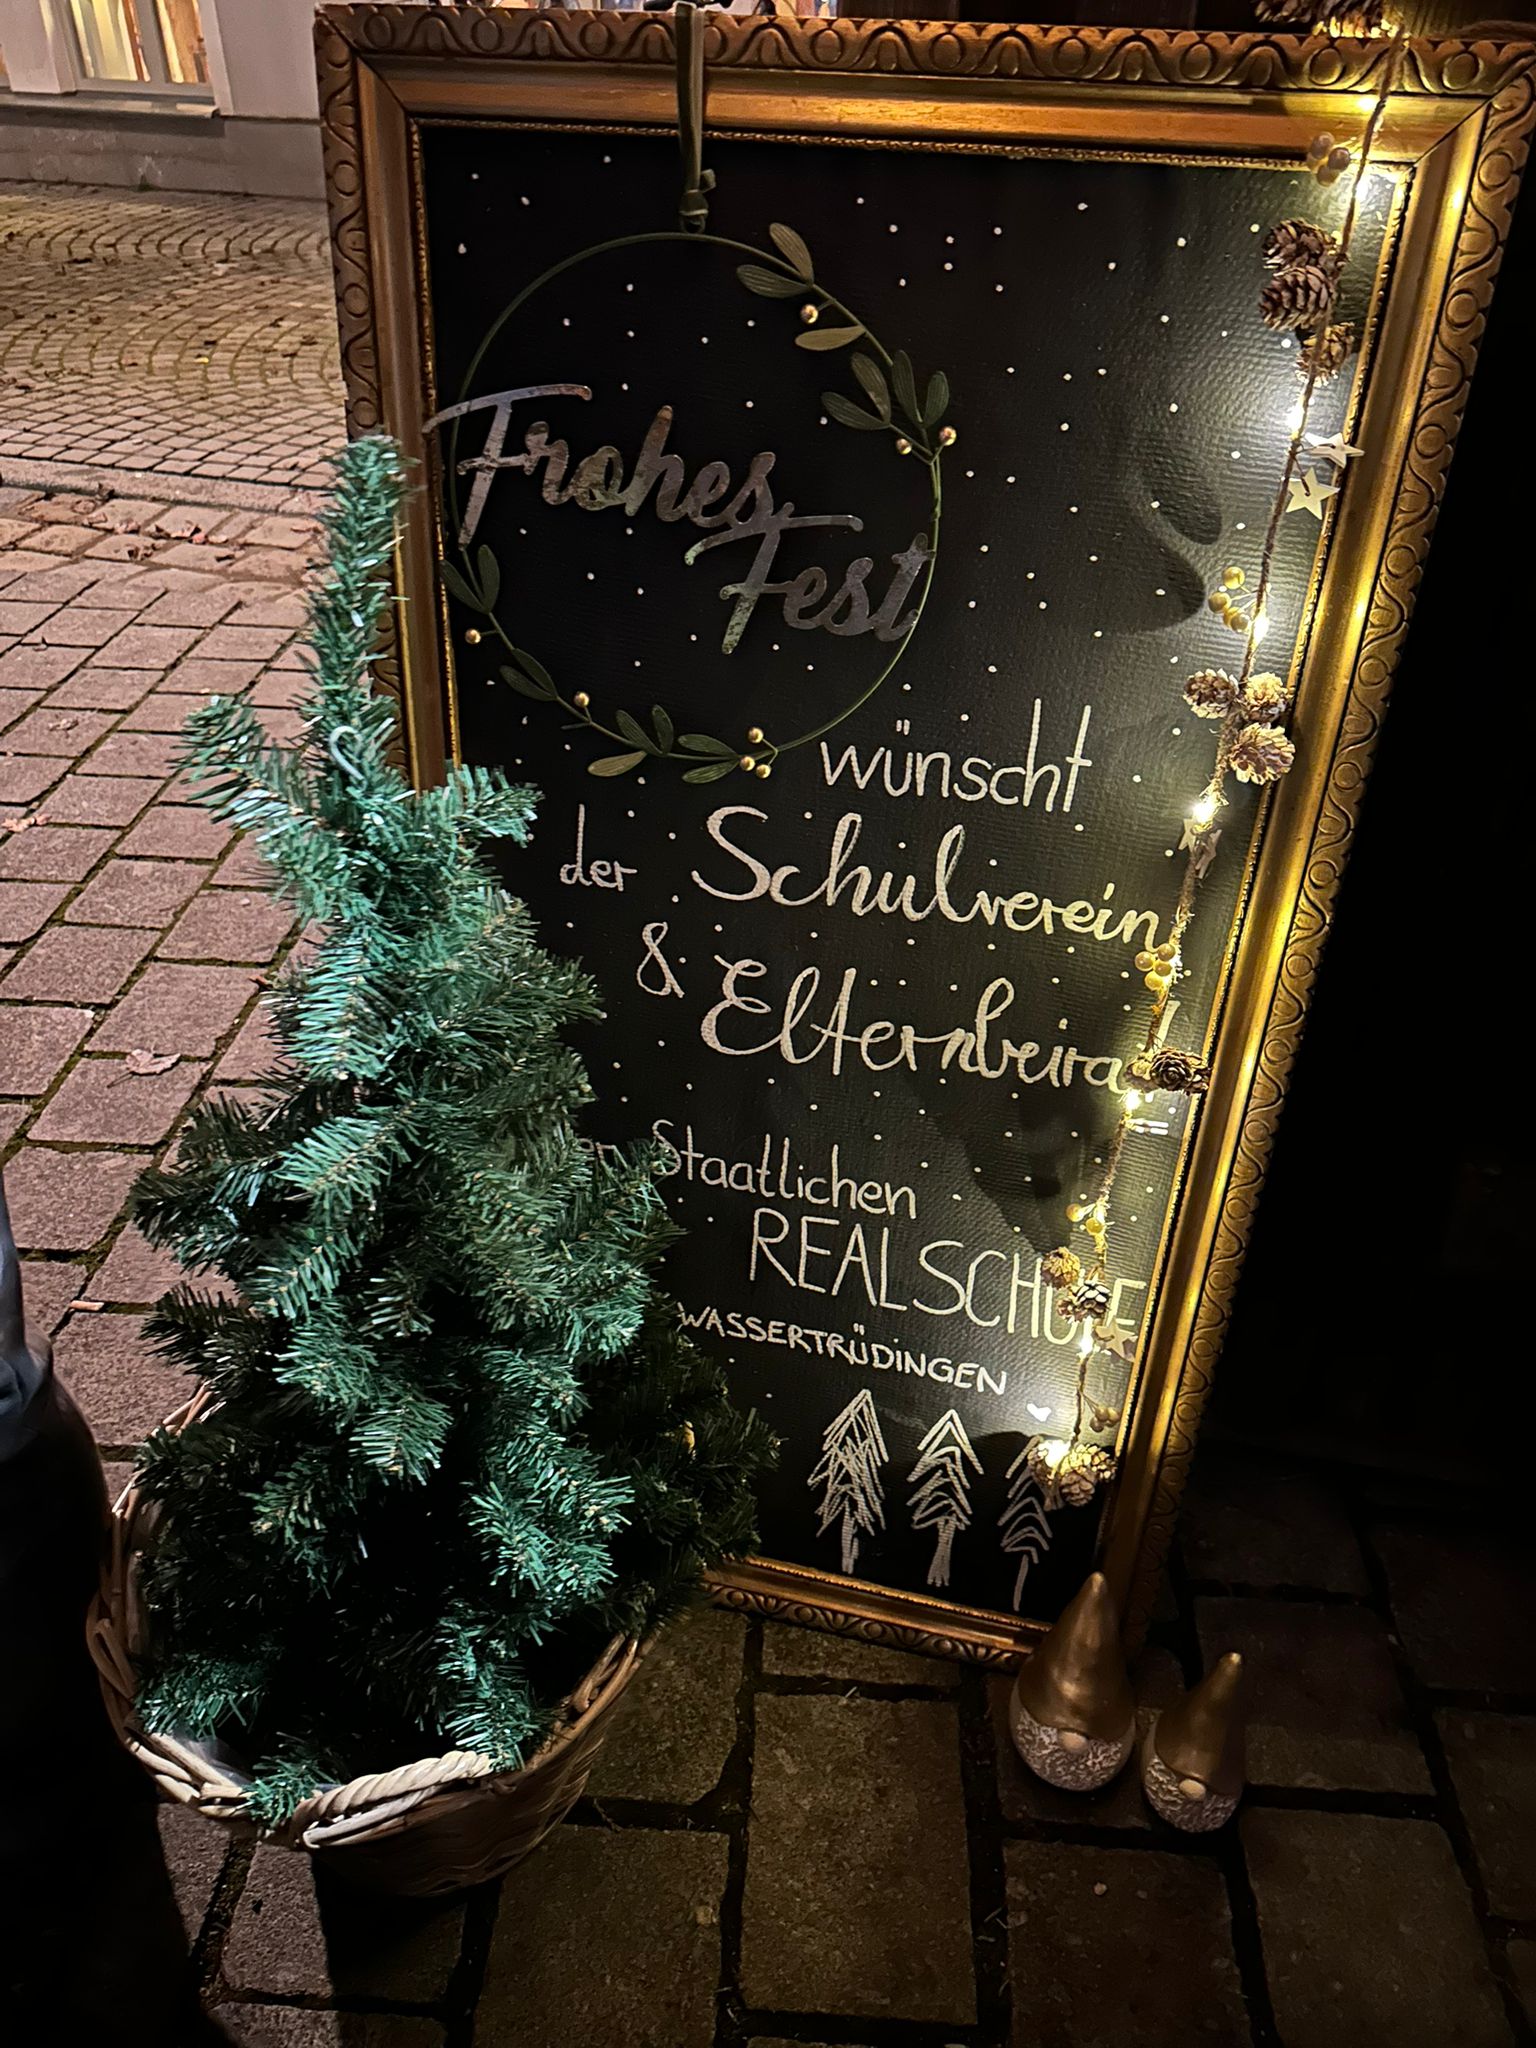 Frohes
Fest
wünscht
der Schulverein
& Elternbeira
Staatlichen
REALSCHULE
WASSERTRÜDINGEN